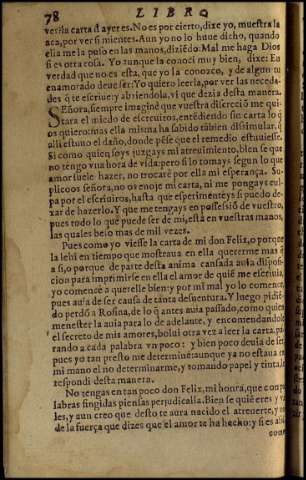 78 LIBRO
ver ni carta d ayer es. No es por cierto, dixe yo, muestra la
aca, por ver si mientes. Aun yo no lo huue dicho, quando
ella me la puso en las manos, diziẽdo: Mal me haga Dios
si es otra cosa. Yo aunque la conoci muy bien, dixe: En
verdad que no es esta, que yo la conozco, y de algun tu
enamorado deue ser: Yo quiero leerla, por ver las neceda-
des q̃ te escriue: y abriendola, vi que dezia desta manera.
SEñora, siempre imaginè que vuestra discreciõ me qui-
tara el miedo de escreuiros, entẽdiendo sin carta lo q̃
os quiero: mas ella misma ha sabido tambien dissimular, q̃
alli estuuo el daño, donde pẽse que el remedio estuuiesse.
Si como quien soys juzgays mi atreuimiento, bien se que
no tengo vna hora de vida: pero si lo tomays segun lo que
amor suele hazer, no trocarè por ella mi esperança. Su-
plicoos señora, no os enoje mi carta, ni me pongays cul-
pa por el escriuiros, hasta que experimenteys si puedo de-
xar de hazerlo. Y que me tengays en possessiõ de vuestro,
pues todo lo que puede ser de mi, està en vuestras manos,
las quales beso mas de mil vezes.
Pues como yo viesse la carta de mi don Felix, o porque
la lehi en tiempo que mostraua en ella quererme mas q̃
a si, o porque de parte desta anima cansada auia disposi-
cion para imprimirse en ella el amor de quiẽ me escriuia,
yo comencè a quererle bien: y por mi mal yo lo comence,
pues auia de ser causa de tanta desuentura. Y luego pidiẽ-
do perdõ a Rosina, de lo q̃ antes auia passado, como quien
menester la auia para lo de adelante, y encomendandole
el secreto de mis amores, bolui otra vez a leer la carta, pa-
rando a cada palabra vn poco: y bien poco deuia de ser,
pues yo tan presto me determinè: aunque ya no estaua en
mi mano el no determinarme, y tomando papel y tinta, le
respondi desta manera.
No tengas en tan poco don Felix, mi honra, que con pa
labras fingidas piensas perjudicalla. Bien se quiẽ eres y va
les, y aun creo que desto te aura nacido el atreuerte, y no
de la fuerça que dizes que el amor te ha hecho: y si es assi
com